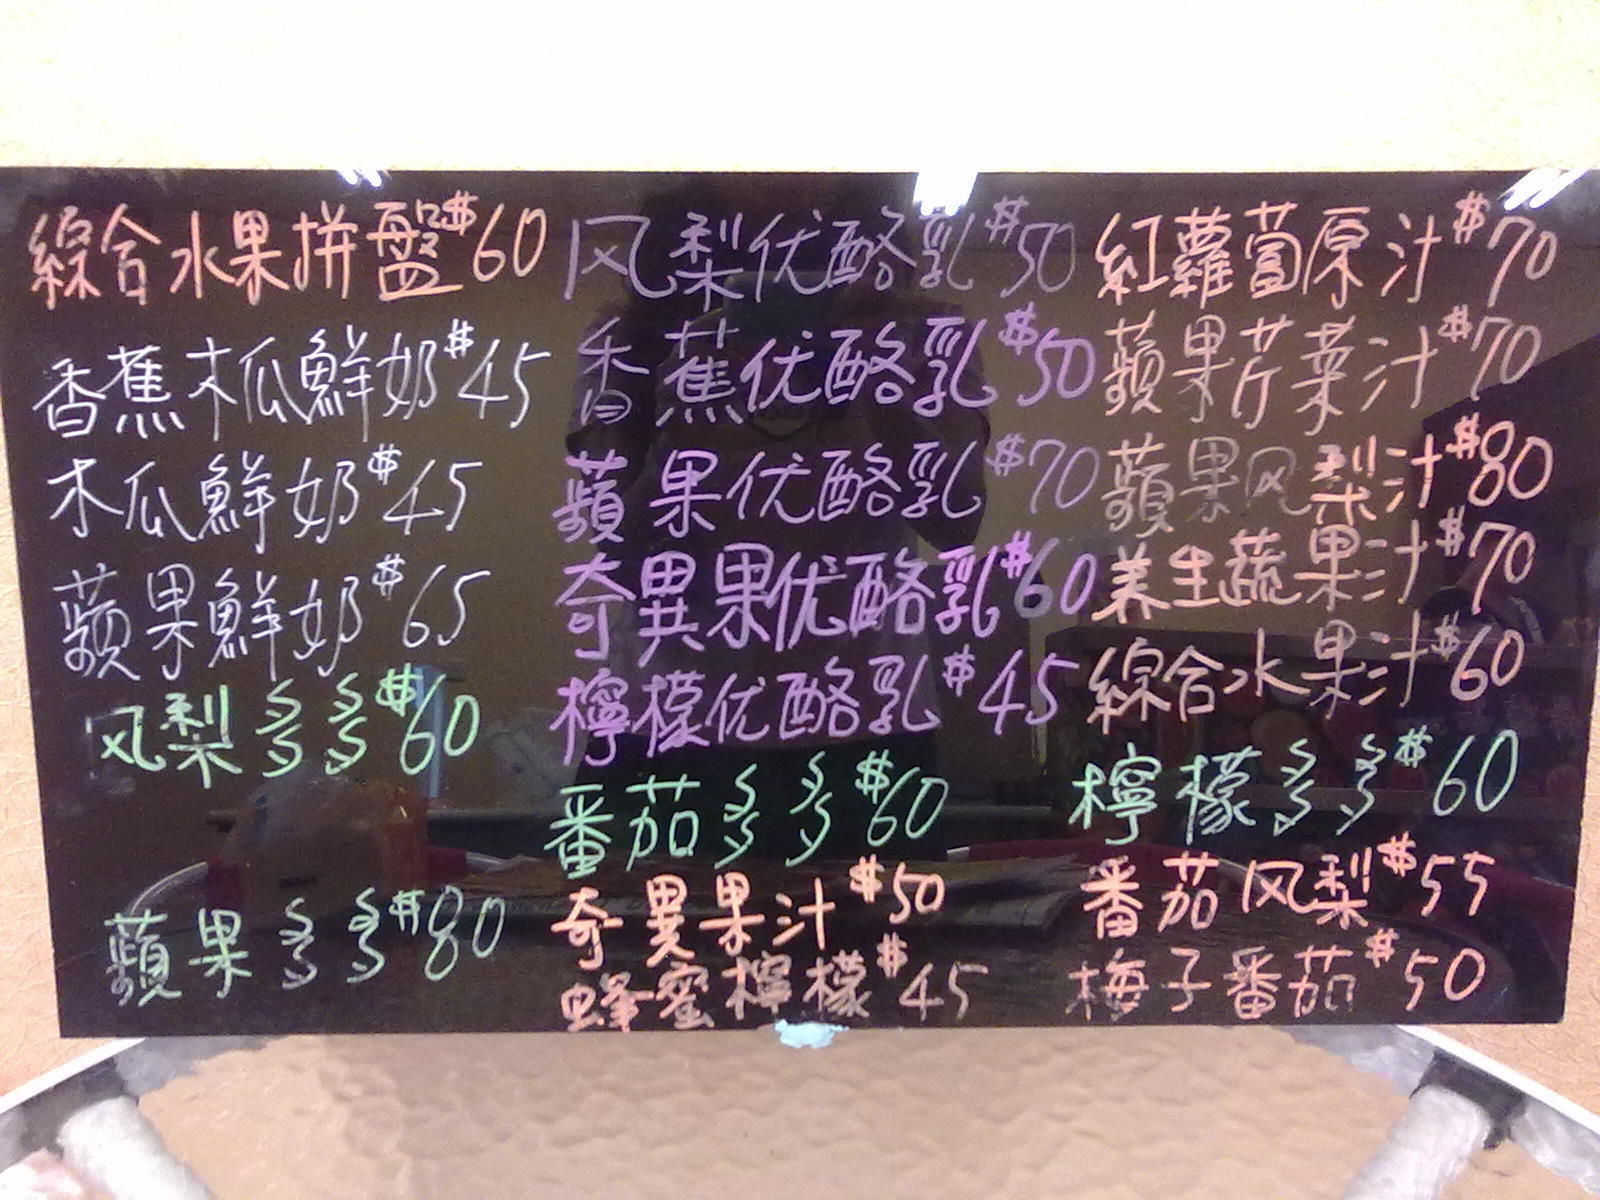 綜合水果拼盤$60
香蕉木瓜鮮奶$45
木瓜鮮奶$45
蘋果鮮奶$65
风梨多多$60
蘋果多多$80
风梨优酪乳$50
香蕉优酪乳$50
蘋果优酪乳$70
奇異果优酪乳$60
檸檬优酪乳$45
番茄多多$60
奇異果汁$50
蜂蜜檸檬$45
紅蘿蔔原汁$70
蘋果芹菜汁$70
蘋果风梨汁$80
养生蔬果汁$70
綜合水果汁$60
檸檬多多$60
番茄风梨$55
梅子番茄$50